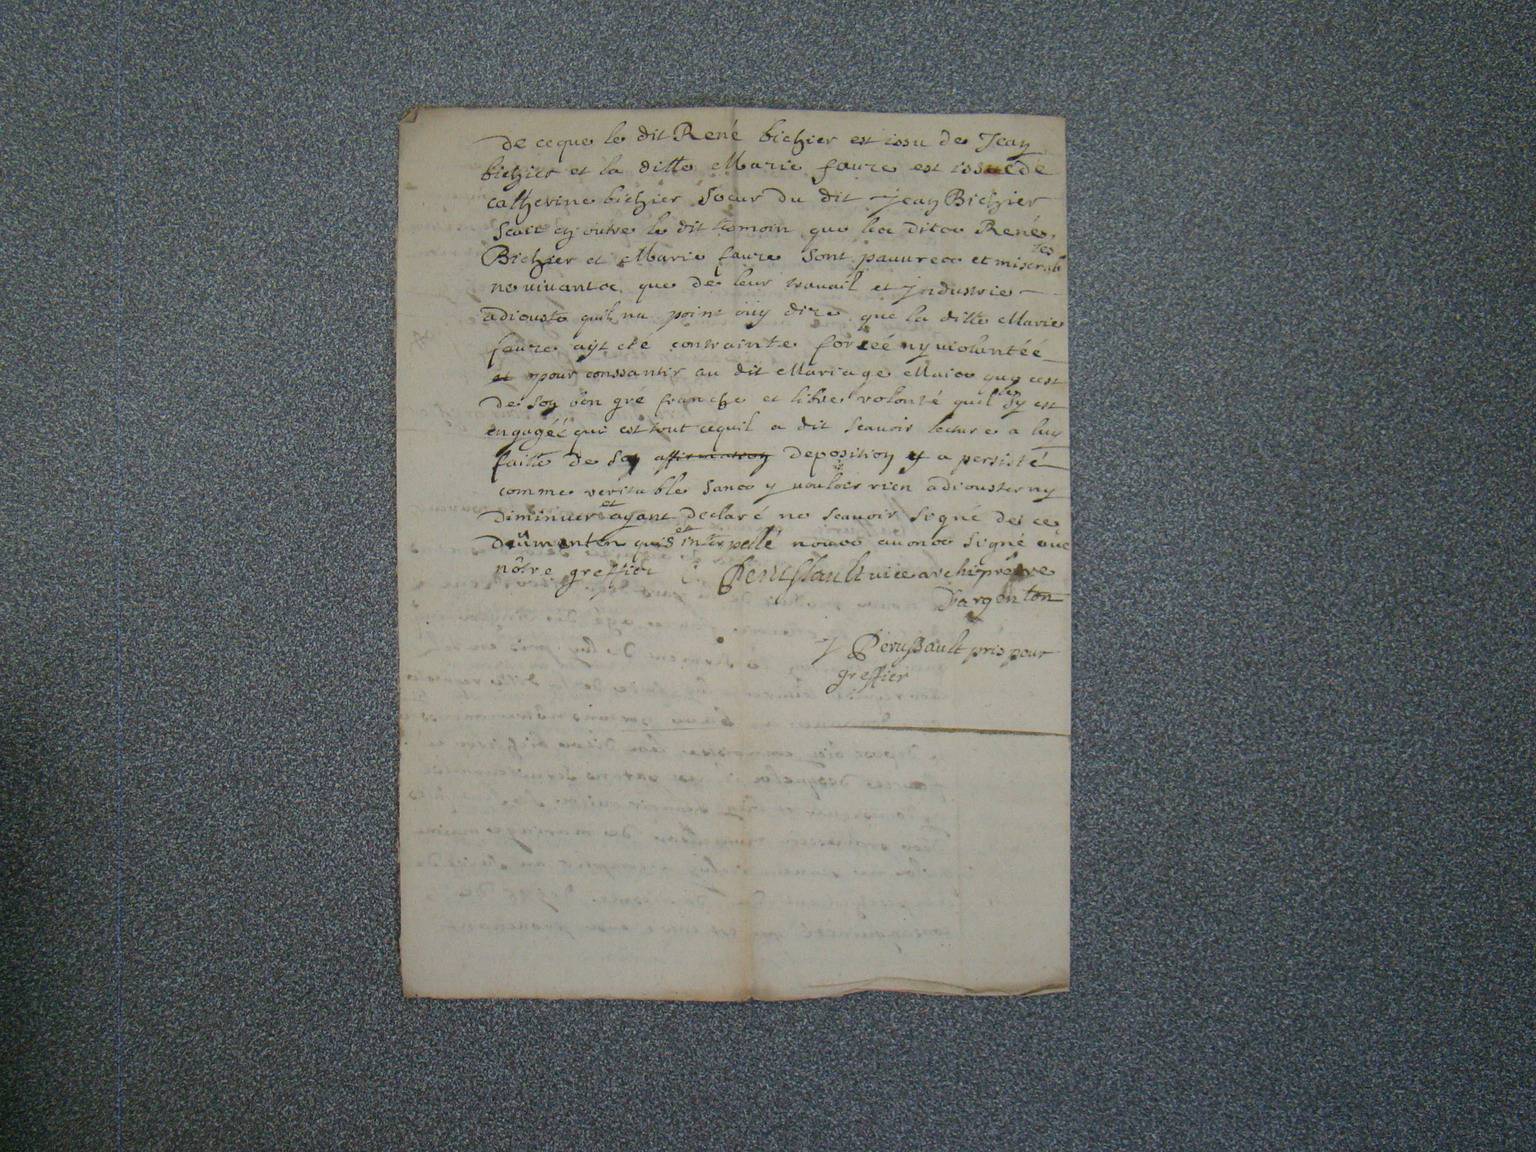 de ceque le dit René bichier est issu de Jean
bichier et la ditte Marie faure est issue de
catherine bichier soeur du dit Jean Bichier
scait en outre le dit temoin que les dits René
Bichier et Marie faure sont pauvres et miserables
ne vivants que de leur travail et jndustrie
adiouste quil na point ouy dire que la ditte Marie
faure ayt eté contrainte forceé ny violanteé
pour conssantir au dit Mariage Mais que cest
de son bon gré franche et libre volonté quil sy est
engageé qui est tout cequil a dit scavoir lecture a luy
faitte de sa affirmation deposition y a persisté
comme veritable sans y vouloir rien adiouster ny
diminuer et ayant declaré ne scavoir signé de ce
deument enquis et interpellé nous avons signé avec
nôtre greffier Perussault vice archiprêtre
d'argenton
Perussault pris pour
greffier